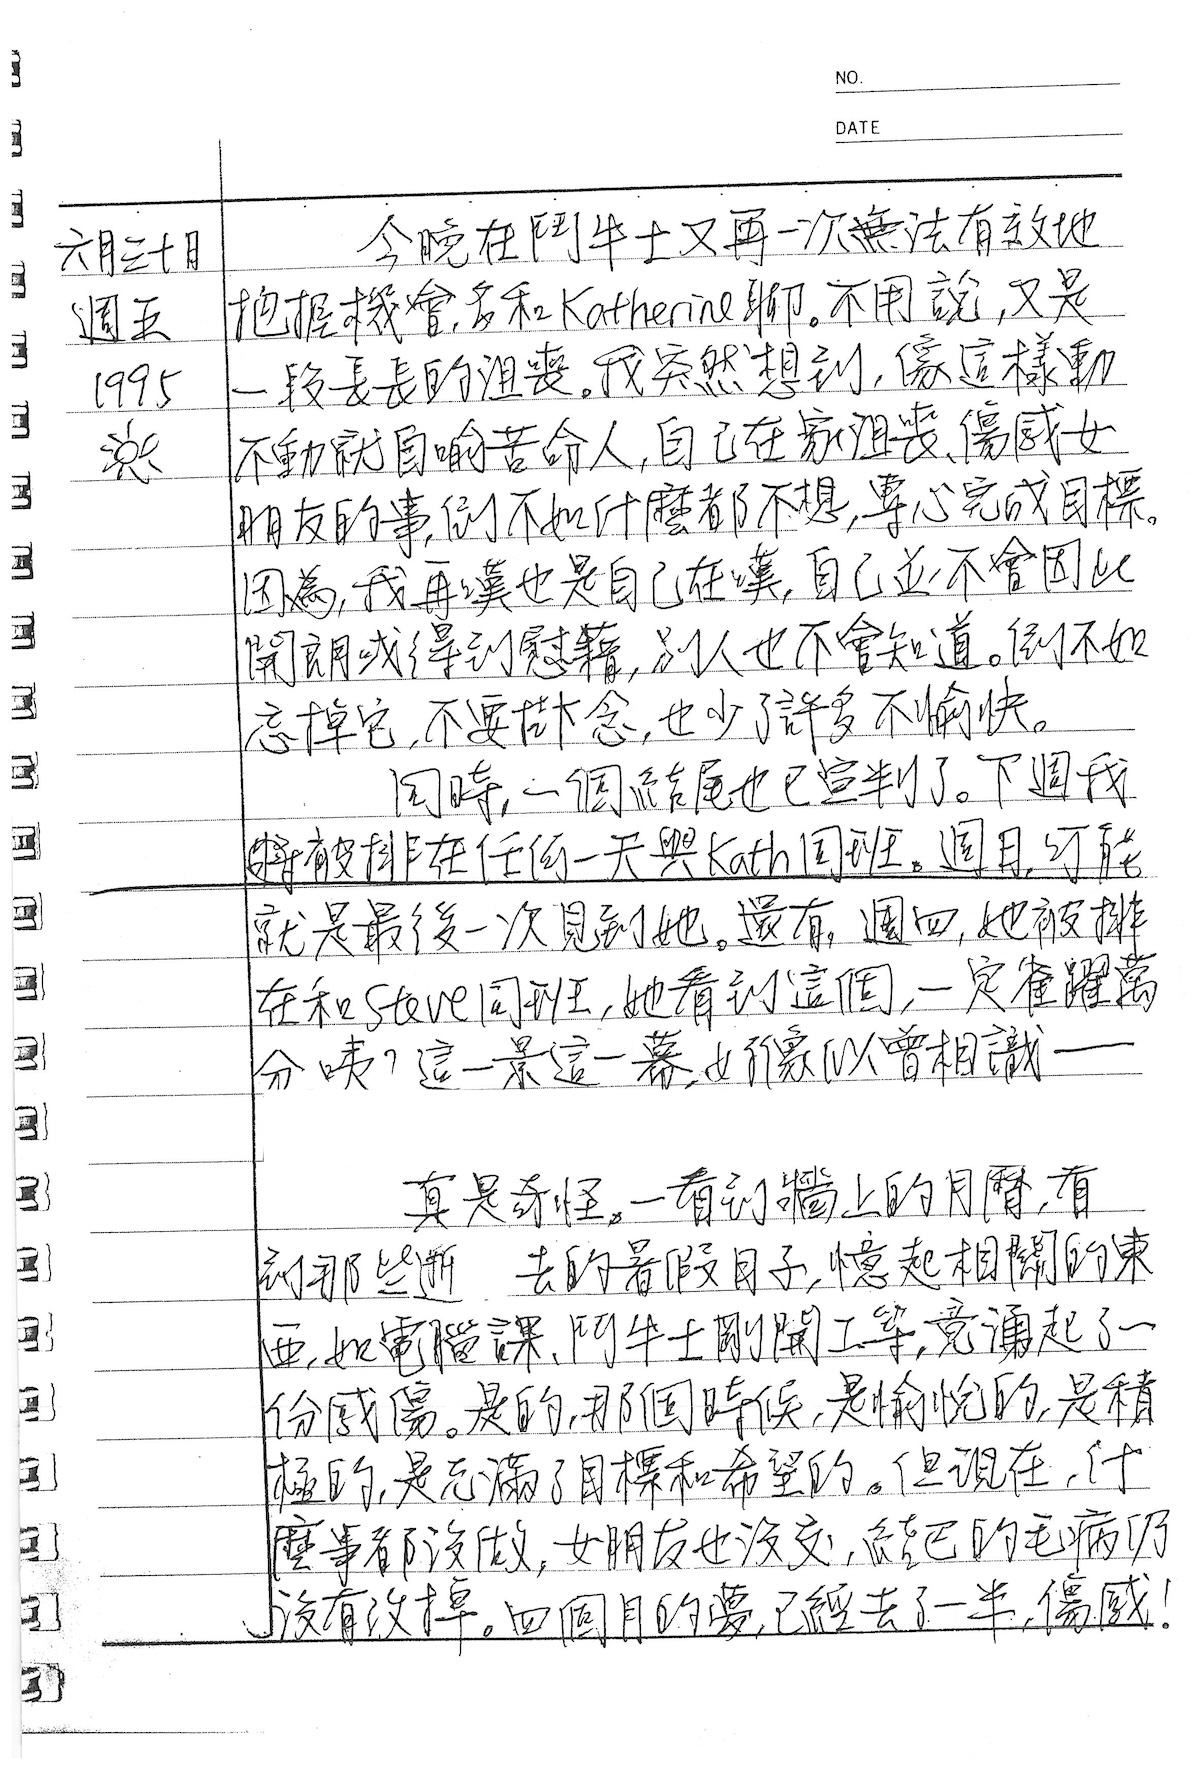 NO.
DATE
六月三十日
週五
1995
今晚在鬥牛士又再一次無法有效地
把握機會,多和Katherine聊。不用說,又是
一段長長的沮喪。我突然想到,像這樣動
不動就自喻苦命人,自己在家沮喪、傷感女
朋友的事,倒不如什麼都不想,專心完成目標。
因為,我再嘆也是自己在嘆,自己並不會因此
開朗或得到慰藉,別人也不會知道。倒不如
忘掉它,不要掛念,也少了許多不愉快。
同時,一個結尾也已宣判了。下週我
將被排在任何一天與Kath同班。週日,可能
就是最後一次見到她。還有,週四,她被排
在和Steve同班,她看到這個,一定雀躍萬
分咦?這一景這一幕,好像似曾相識——
真是奇怪。一看到牆上的月曆,看
到那些逝 去的暑假日子,憶起相關的東
西,如電腦課、鬥牛士剛開工等,竟湧起了一
份感傷。是的,那個時候,是愉悅的,是積
極的,是充滿了目標和希望的。但現在,什
麼事都沒做,女朋友也沒交,結巴的毛病仍
沒有改掉。四個月的夢,已經去了一半,傷感!